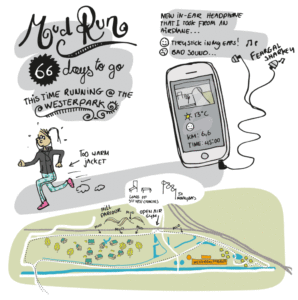 Mud Run
66 days to go
THIS TIME RUNNING @ THE
WESTERPARK
NEW IN-EAR HEADPHONE
THAT I TOOK FROM AN
AIRPLANE...
THEY STICK IN MY EARS!
BAD SOUND...
FEARGAL
SHARKEY
13°C
KM: 6,6
TIME 45:00
TOO WARM
JACKET
HILL
OPEN AIR